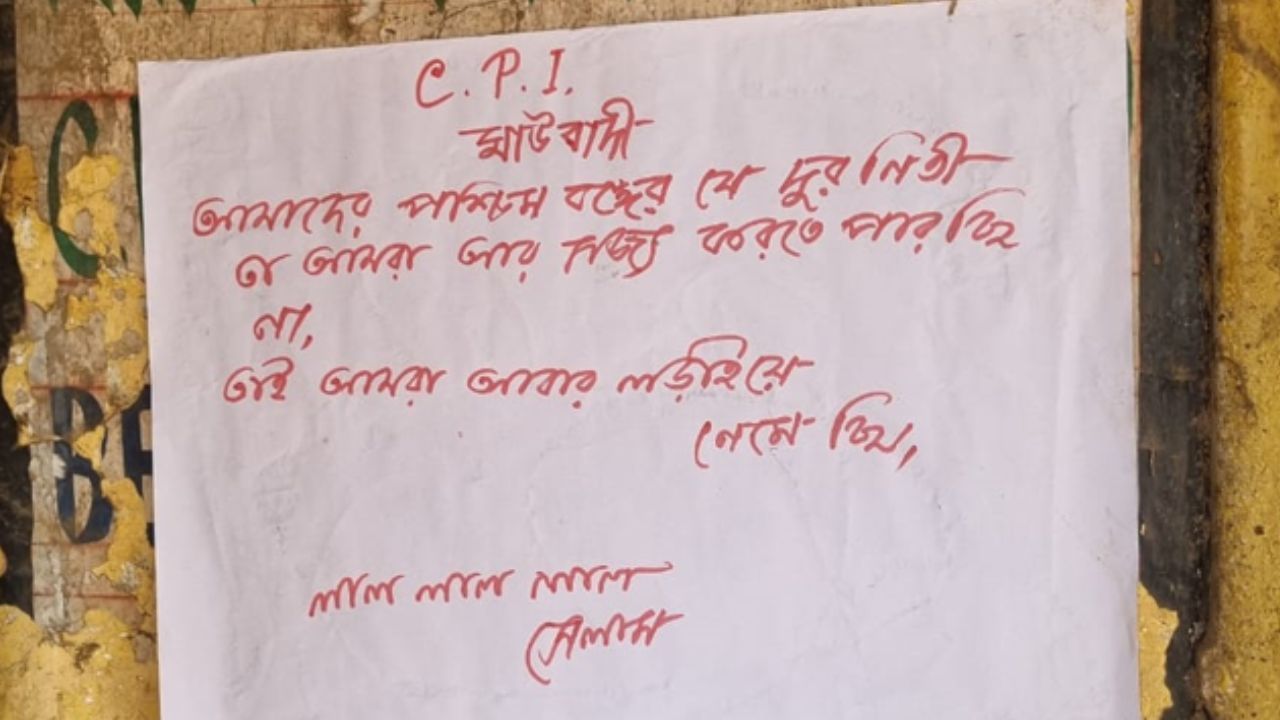 C. P. I.
মাউবাদী
আমাদের পশ্চিম বঙ্গের যে দুর নিতী
তা আমরা আর সজ্য করতে পার চ্ছি
না,
তাই আমরা আবার লড়াইয়ে
নেমে চ্ছি,
লাল লাল লাল
সেলাম